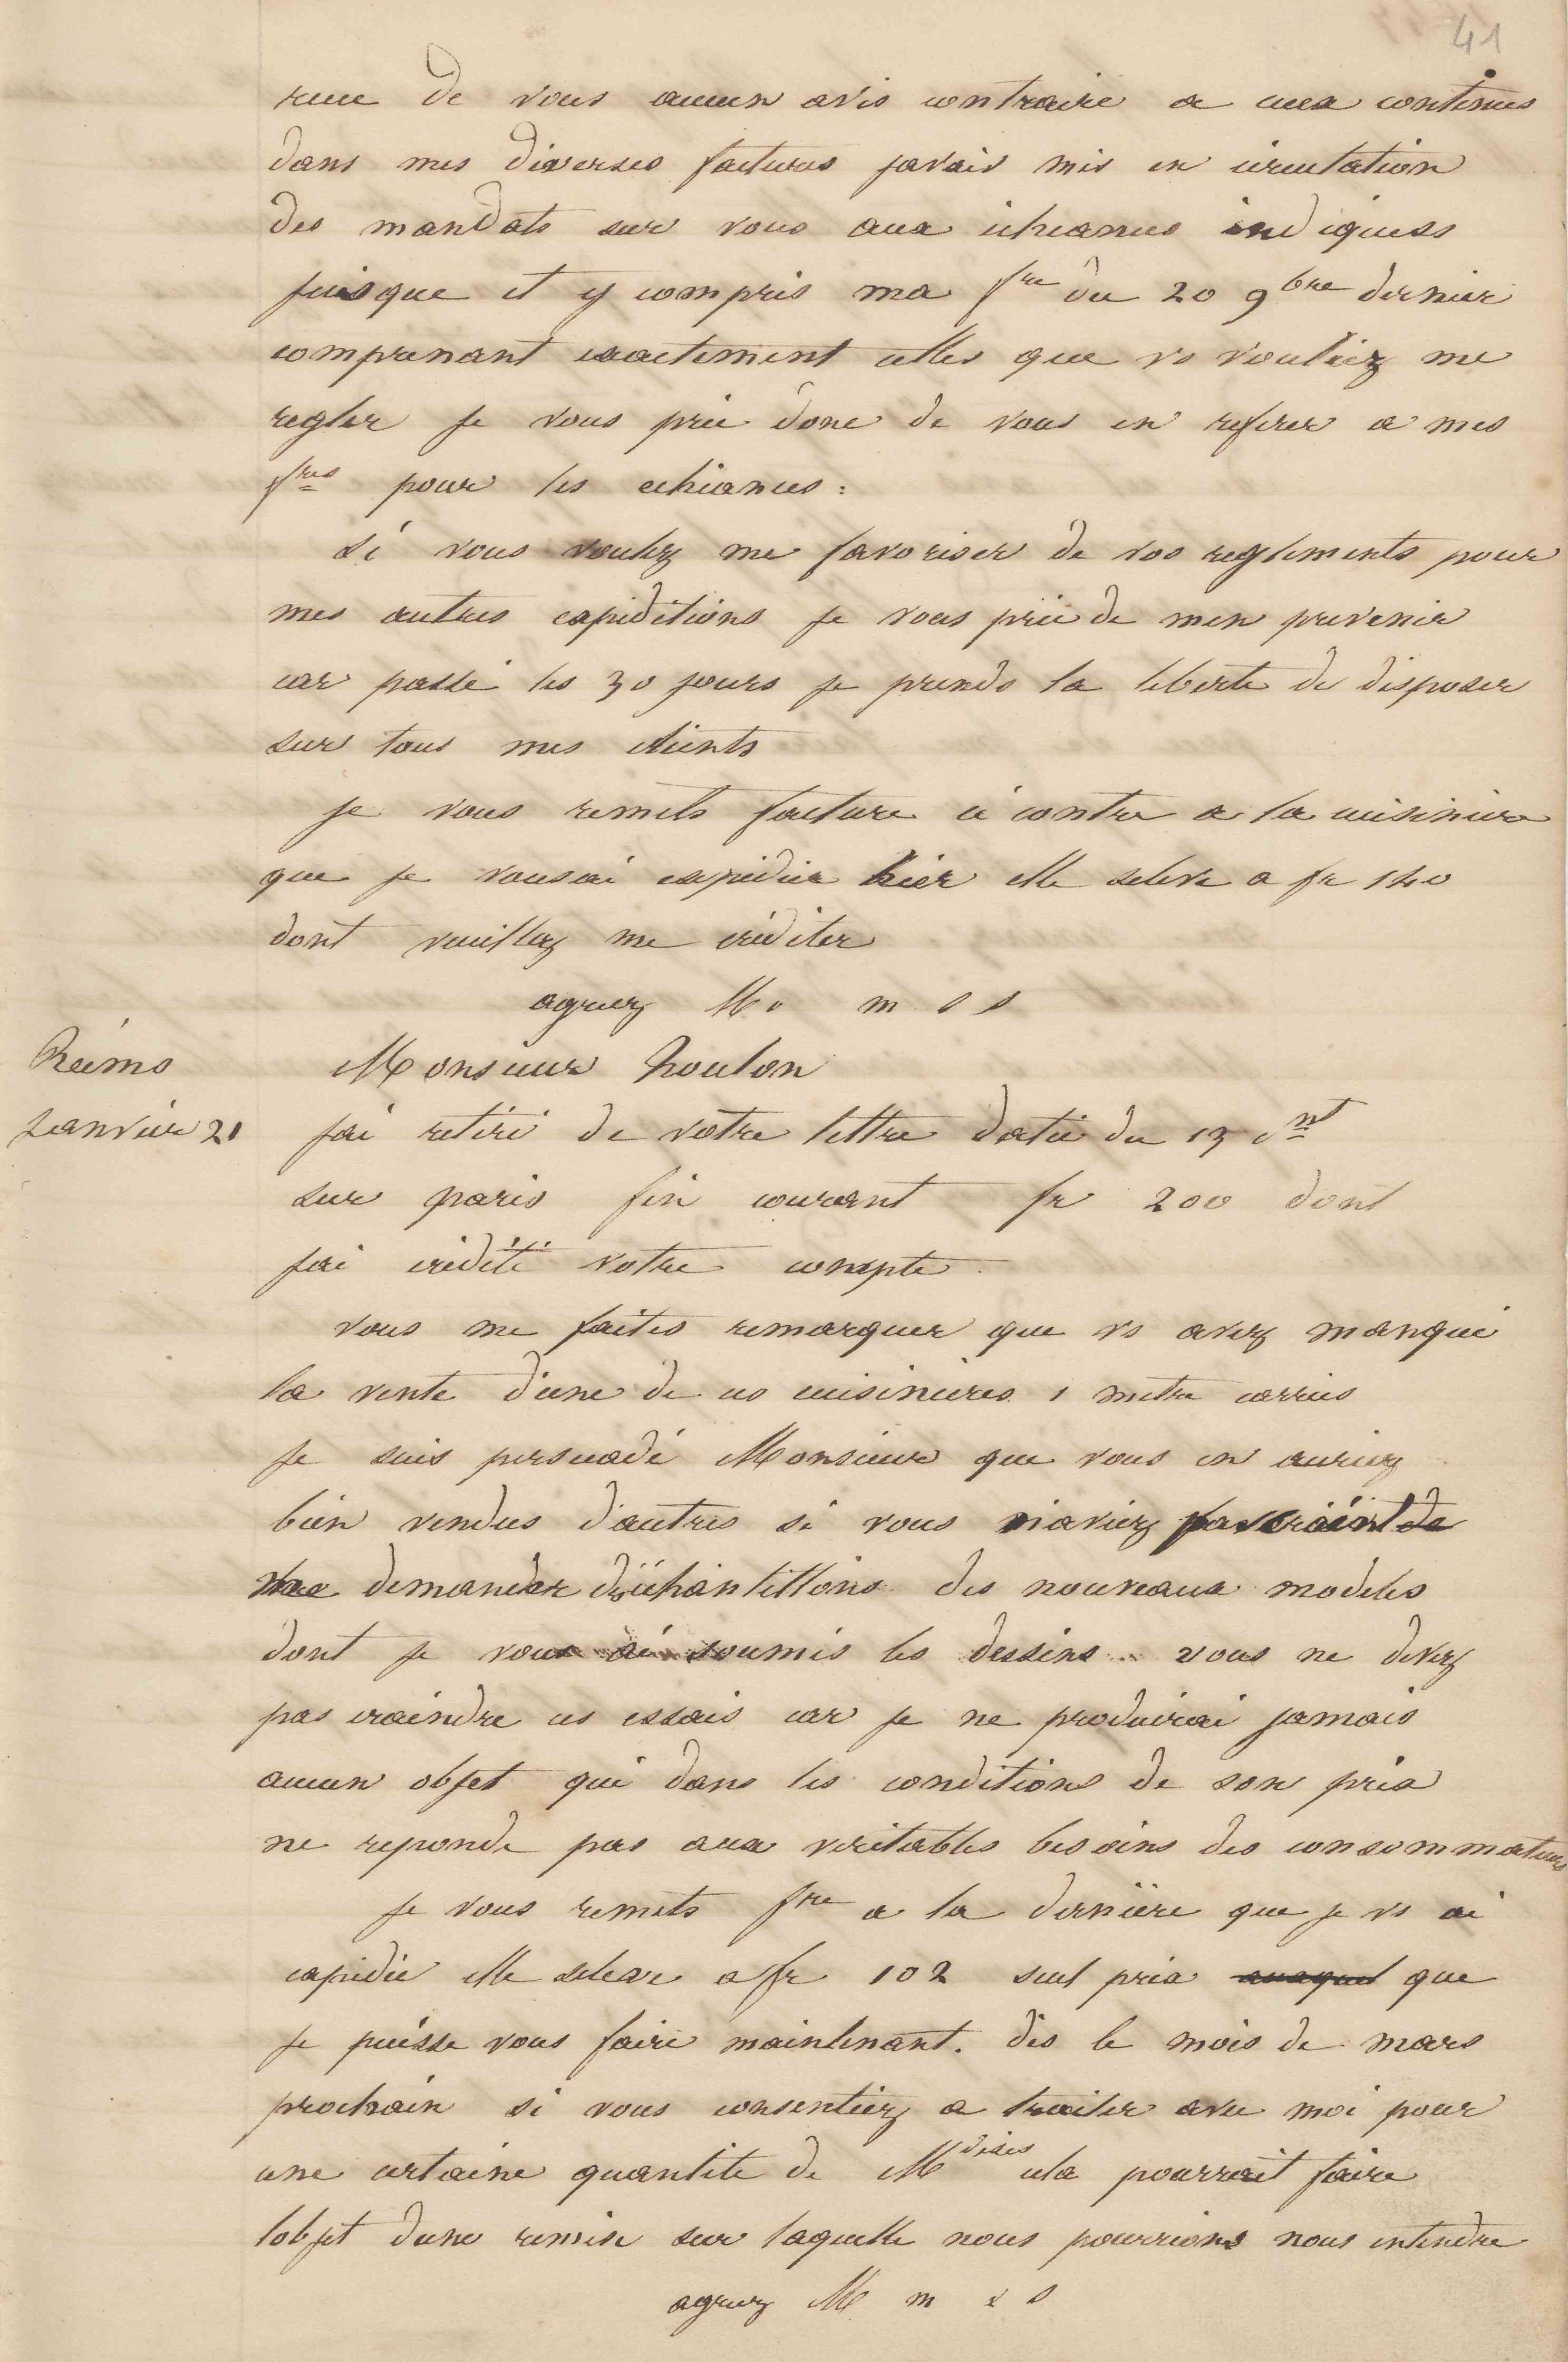 41
recu de vous aucun avis contraire a ceux contenus
dans mes diverses factures javais mis en circulation
des mandats sur vous aux echeances indiquees
jusque et y compris ma fre du 20 9bre dernier
comprenant exactement celles que vs vouliez me
regler je vous prie donc de vous en referer a mes
fres pour les echeances :
si vous voulez me favoriser de vos reglements pour
mes autres expeditions je vous prie de men prevenir
car passé les 30 jours je prends la liberte de disposer
sur tous mes clients
je vous remets facture ci contre a la cuisiniere
que je vous ai expediee hier elle seleve a fr 140
dont veuillez me créditer
agreez Mr m s s
Reims
Janvier 21
Monsieur Houlon
jai retiré de votre lettre datée du 13 cnt
sur paris fin courant fr 200 dont
jai crédité votre compte
vous me faites remarquer que vs avez manqué
la vente d'une de ces cuisinieres 1 metre carrées
je suis persuadé Monsieur que vous en auriez
bien vendues d'autres si vous n'aviez pas craint de
me demander d'échantillons des nouveaux modeles
dont je vous ai soumis les dessins vous ne devez
pas craindre ces essais car je ne produirai jamais
aucun objet qui dans les conditions de son prix
ne reponde pas aux veritables besoins des consommateurs
je vous remets fre a la derniere que je vs ai
expediée elle seleve a fr 102 seul prix auquel que
je puisse vous faire maintenant. dès le mois de mars
prochain si vous consentiez a traiter avec moi pour
une certaine quantite de Mdises cela pourrait faire
lobjet dune remise sur laquelle nous pourrions nous entendre
agreez M m s s